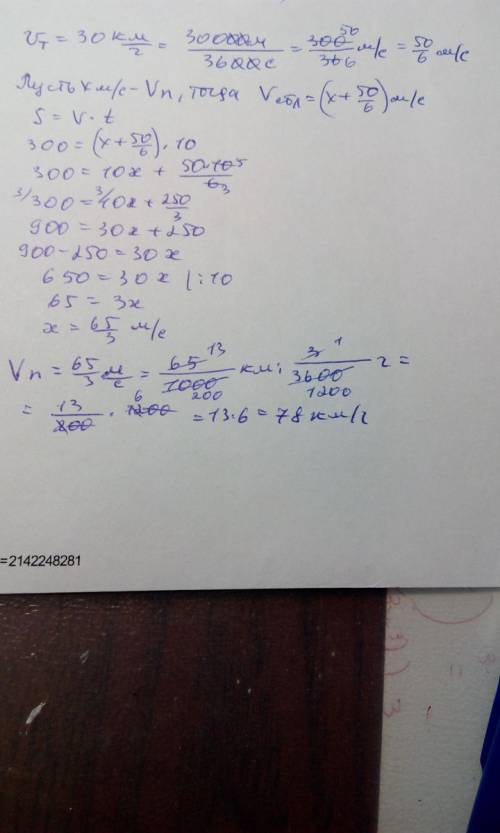 Vт = 30 км/г = 30000м/3600с = 300/36 50/6 м/с = 50/6 м/с
Пусть x м/с - Vп, тогда Vсбл = (x + 50/6) м/с
S = V · t
300 = (x + 50/6) · 10
300 = 10x + 50·10 5/6 3
3/300 = 3/10x + 250/3
900 = 30x + 250
900 - 250 = 30x
650 = 30x |:10
65 = 3x
x = 65/3 м/с
Vп = 65/3 м/с = 65 13/1000 200 км : 3 1/3600 1200 г =
= 13/200 · 1200 6 = 13·6 = 78 км/г
=2142248281